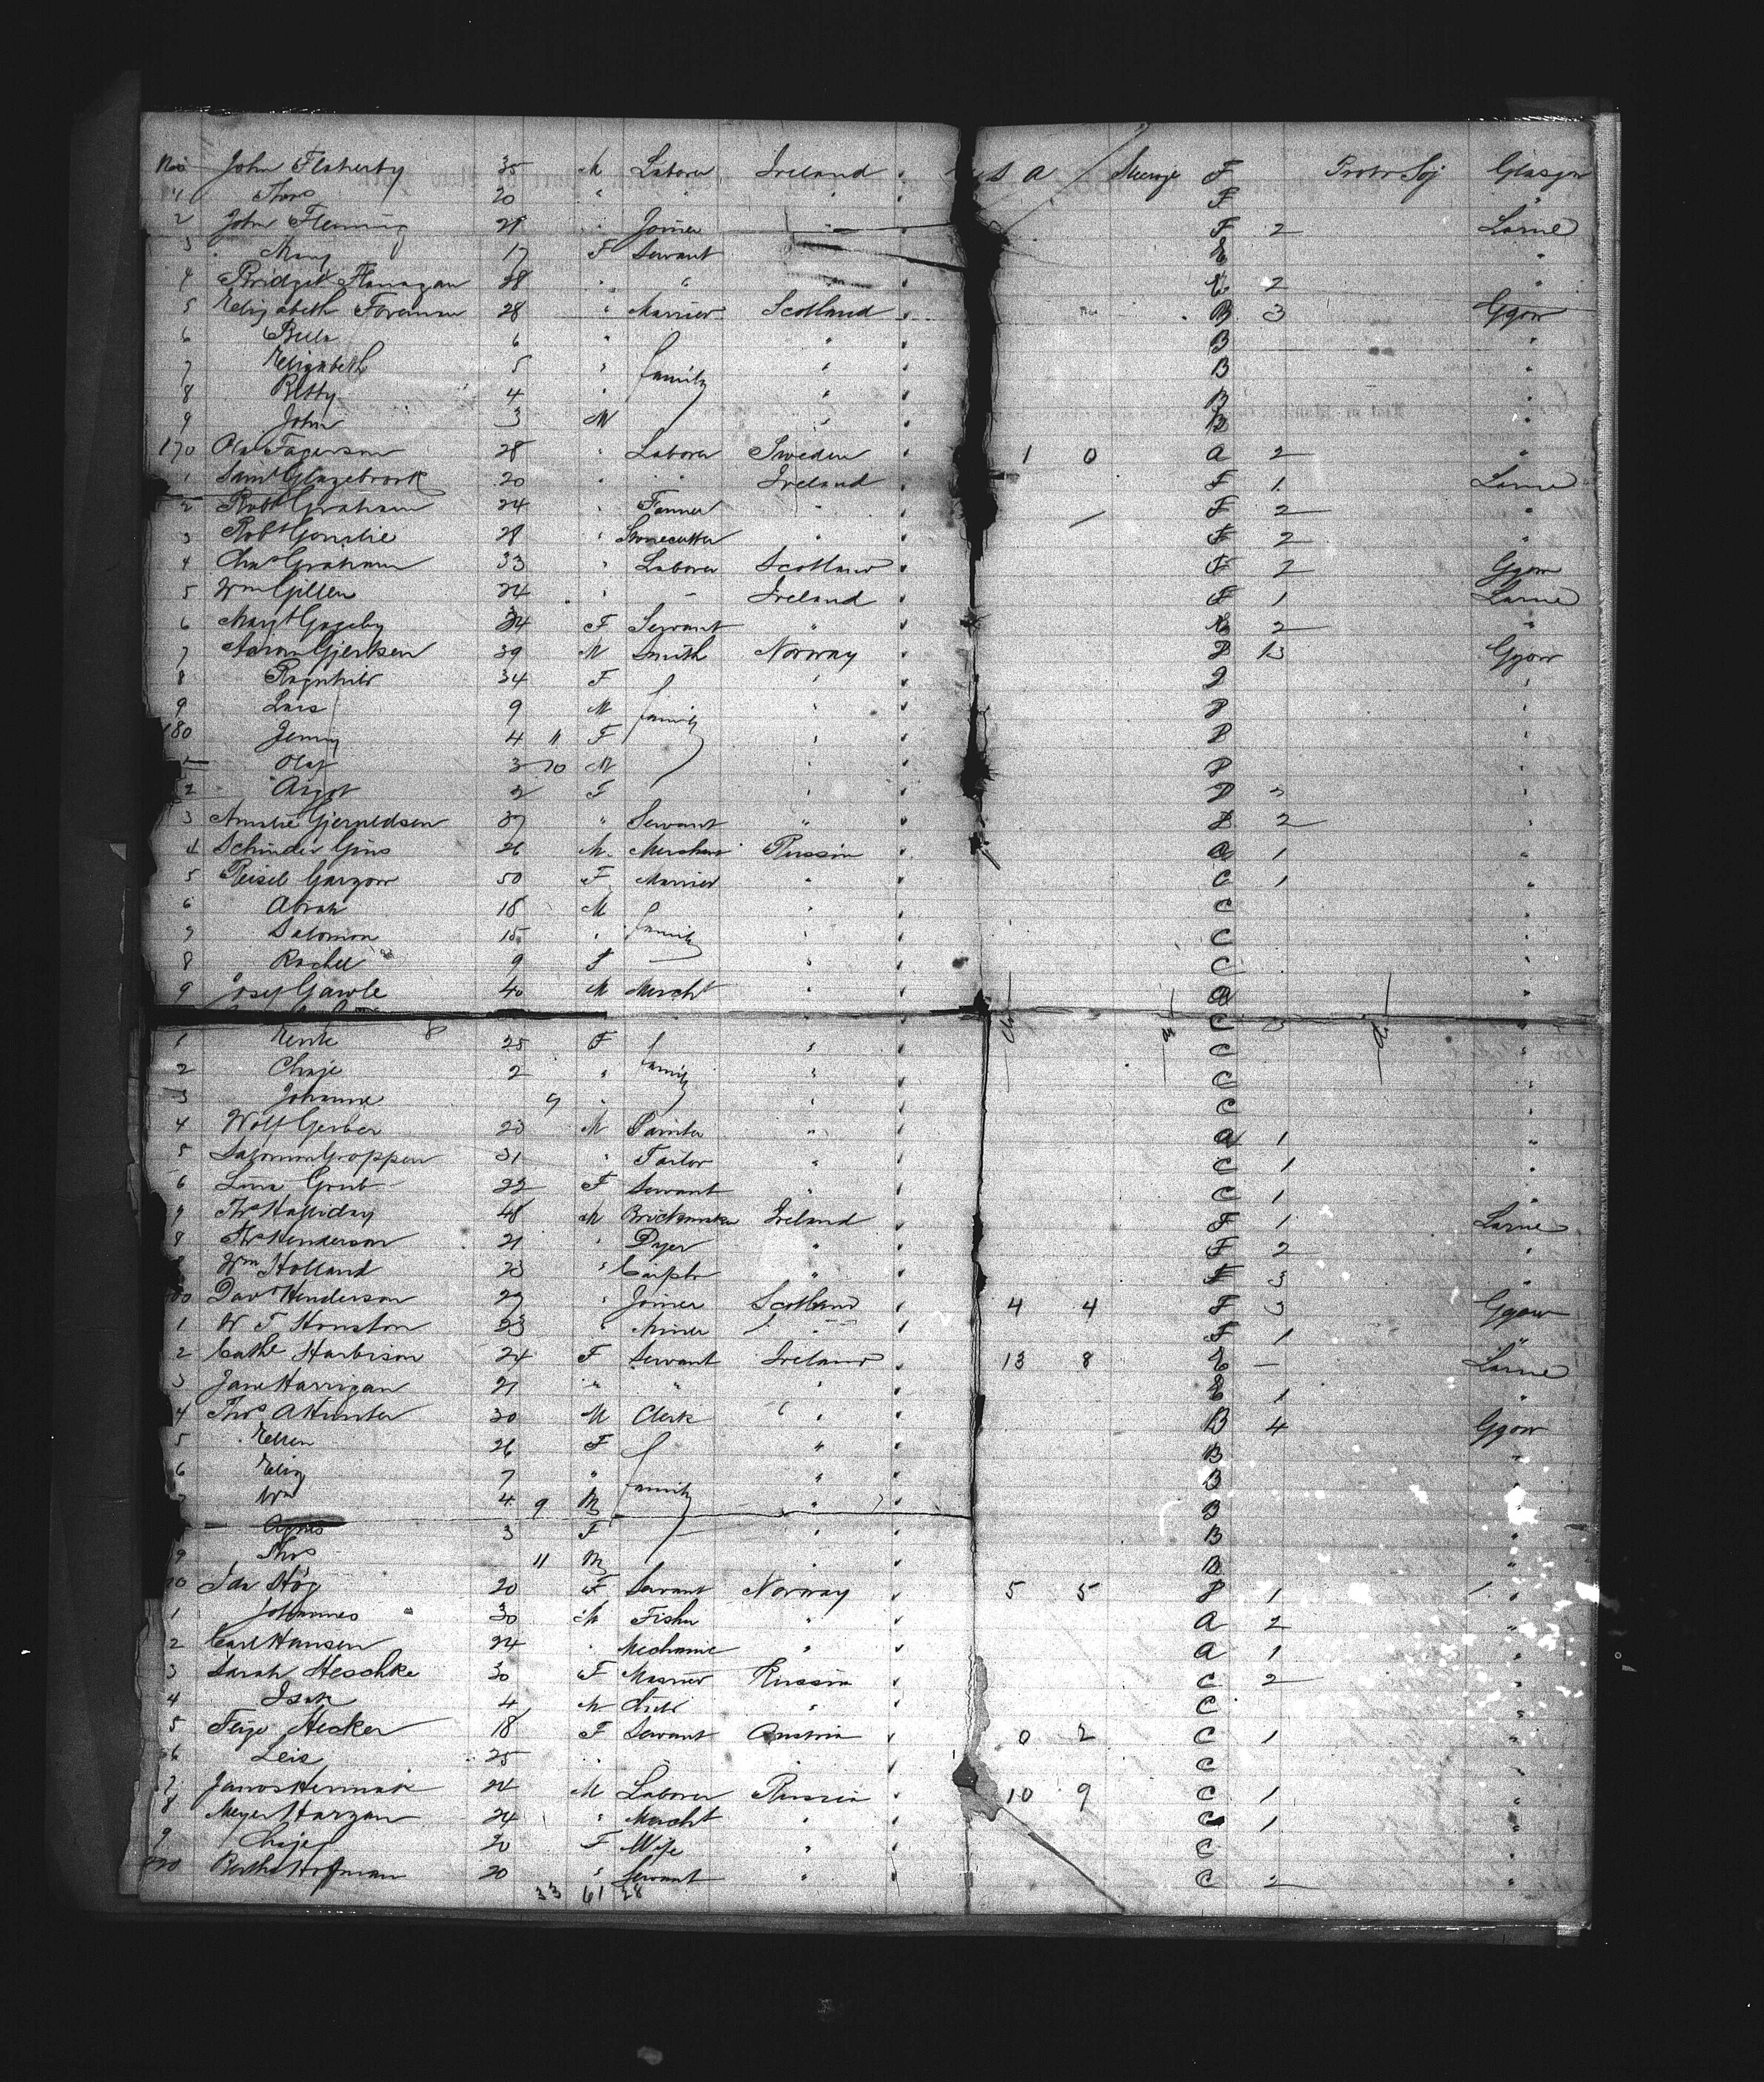 John Flaherty 35 M Laborer Ireland U S A Steerage F Protr Soj Glasgow
1 Thos 20 " " " F "
2 John Fleming 21 " Joiner " F 2 Larne
3 Mary 17 F Servant E "
4 Bridget Flanagan 28 " " " E 2 "
5 Elizabeth Foreman 28 " Married Scotland B 3 Ggow
6 Bella 6 " " B "
7 Elizabeth 5 " family " B "
8 Betty 4 " " B "
9 John 3 M " B "
170 Ola Fagerson 28 " Laborer Sweden 1 0 A 2 "
1 Saml Glazebrook 20 " " Ireland F 1 Larne
2 Robt Graham 24 " Farmer " F 2 "
3 Robt 28 " Stonecutter " F 2 "
4 Chas Graham 33 " Laborer Scotland F 2 Ggow
5 Wm Gillen 24 " " Ireland F 1 Larne
6 Margt Gageby 34 F Servant " E 2 "
7 Gjertsen 39 M Smith Norway P 13 Ggow
8 Ragnhild 34 F " P "
9 Lars 9 M family " P "
180 Jenny 4 11 F " P "
1 Olaf 3 10 M " P "
2 2 F " P "
3 37 " Servant " P 2 "
4 26 M Merchant Russia C 1 "
5 50 F Married " C 1 "
6 Abrah 18 M " C "
7 Salomon 15 " family " C "
8 Rachel 9 F " C "
9 Josef 40 M Mercht " A "
" C "
1 25 F " C "
2 Chaje 2 " family " C "
3 Johanne 9 " " C "
4 Wolf Gerber 23 M Painter " A 1 "
5 31 " Tailor " C 1 "
6 22 F Servant " C 1 "
7 Thos Halliday 48 M Brickmaker Ireland F 1 Larne
8 Thos Henderson 21 " Dyer " F 2 "
Wm Holland 23 " " F 3 "
Davd Henderson 29 " Joiner Scotland 4 4 F 3 Ggow
1 W T Houston 23 " Miner " F 1 "
2 Cathe Harbison 24 F Servant Ireland 13 8 E — Larne
3 Jane Harrigan 21 " " " E 1 "
4 Thos A Hunter 30 M Clerk " B 4 Ggow
5 Ellen 26 F " B "
6 Eliz 7 " family " B "
7 Wm 4 9 M " B
Agnes 3 F " B "
9 Thos 11 M " B "
10 Ida Hög 20 F Servant Norway 5 5 P 1 "
1 Johannes 30 M Fisher " A 2 "
2 Carl Hansen 24 " Mechanic " A 1 "
3 Sarah Heschke 30 F Married Russia C 2 "
4 Isak 4 M Child " C "
5 Feige Hecker 18 F Servant Austria 0 2 C 1 "
6 Leis 25 " " " C "
7 Janos 24 M Laborer Russia 10 9 C 1 "
8 Meyer Harzan 24 " Mercht " C 1 "
9 20 F Wife " C "
Bertha Hofman 20 " Servant " C 2 "
33 61 28